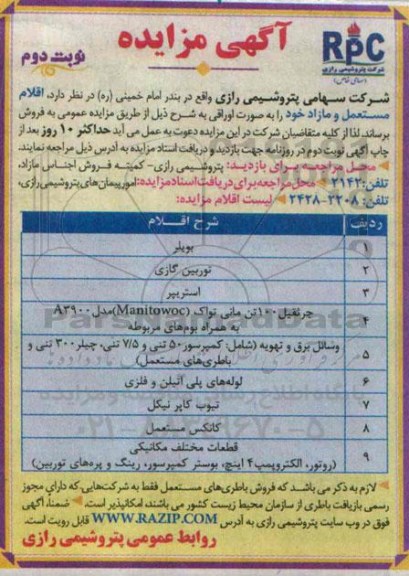 آگهی مزایده
نوبت دوم
RPC
شرکت پتروشیمی رازی
(سهامی خاص)
شرکت سهامی پتروشیمی رازی واقع در بندر امام خمینی (ره) در نظر دارد، اقلام
مستعمل و مازاد خود را به صورت اوراقی به شرح ذیل از طریق مزایده عمومی به فروش
برساند. لذا از کلیه متقاضیان شرکت در این مزایده دعوت به عمل می آید حداکثر ۱۰ روز بعد از
چاپ آگهی نوبت دوم در روزنامه جهت بازدید و دریافت اسناد مزایده به آدرس ذیل مراجعه نمایند.
محل مراجعه برای بازدید: پتروشیمی رازی - کمیته فروش اجناس مازاد،
تلفن: ۲۱۴۲ محل مراجعه برای دریافت اسناد مزایده: امور پیمان های پتروشیمی رازی،
تلفن: ۲۲۰۸-۲۴۲۸ لیست اقلام مزایده:
ردیف شرح اقلام
۱ بویلر
۲ توربین گازی
۳ استریپر
۴ جرثقیل ۱۰۰ تن مانی تواک (Manitowoc) مدل A۳۹۰۰
به همراه بوم های مربوطه
۵ وسائل برق و تهویه (شامل: کمپرسور ۵۰ تنی و ۷/۵ تنی، چیلر ۳۰۰ تنی و
باطری های مستعمل)
۶ لوله های پلی اتیلن و فلزی
۷ تیوب کاپر نیکل
۸ کانکس مستعمل
۹ قطعات مختلف مکانیکی
(روتور، الکتروپمپ ۴ اینچ، بوستر کمپرسور، رینگ و پره های توربین)
لازم به ذکر می باشد که فروش باطری های مستعمل فقط به شرکت هایی، که دارای مجوز
رسمی بازیافت باطری از سازمان محیط زیست کشور می باشند، امکانپذیر است. ضمناً، آگهی
فوق در وب سایت پتروشیمی رازی به آدرس WWW.RAZIP.COM قابل رویت است.
روابط عمومی پتروشیمی رازی